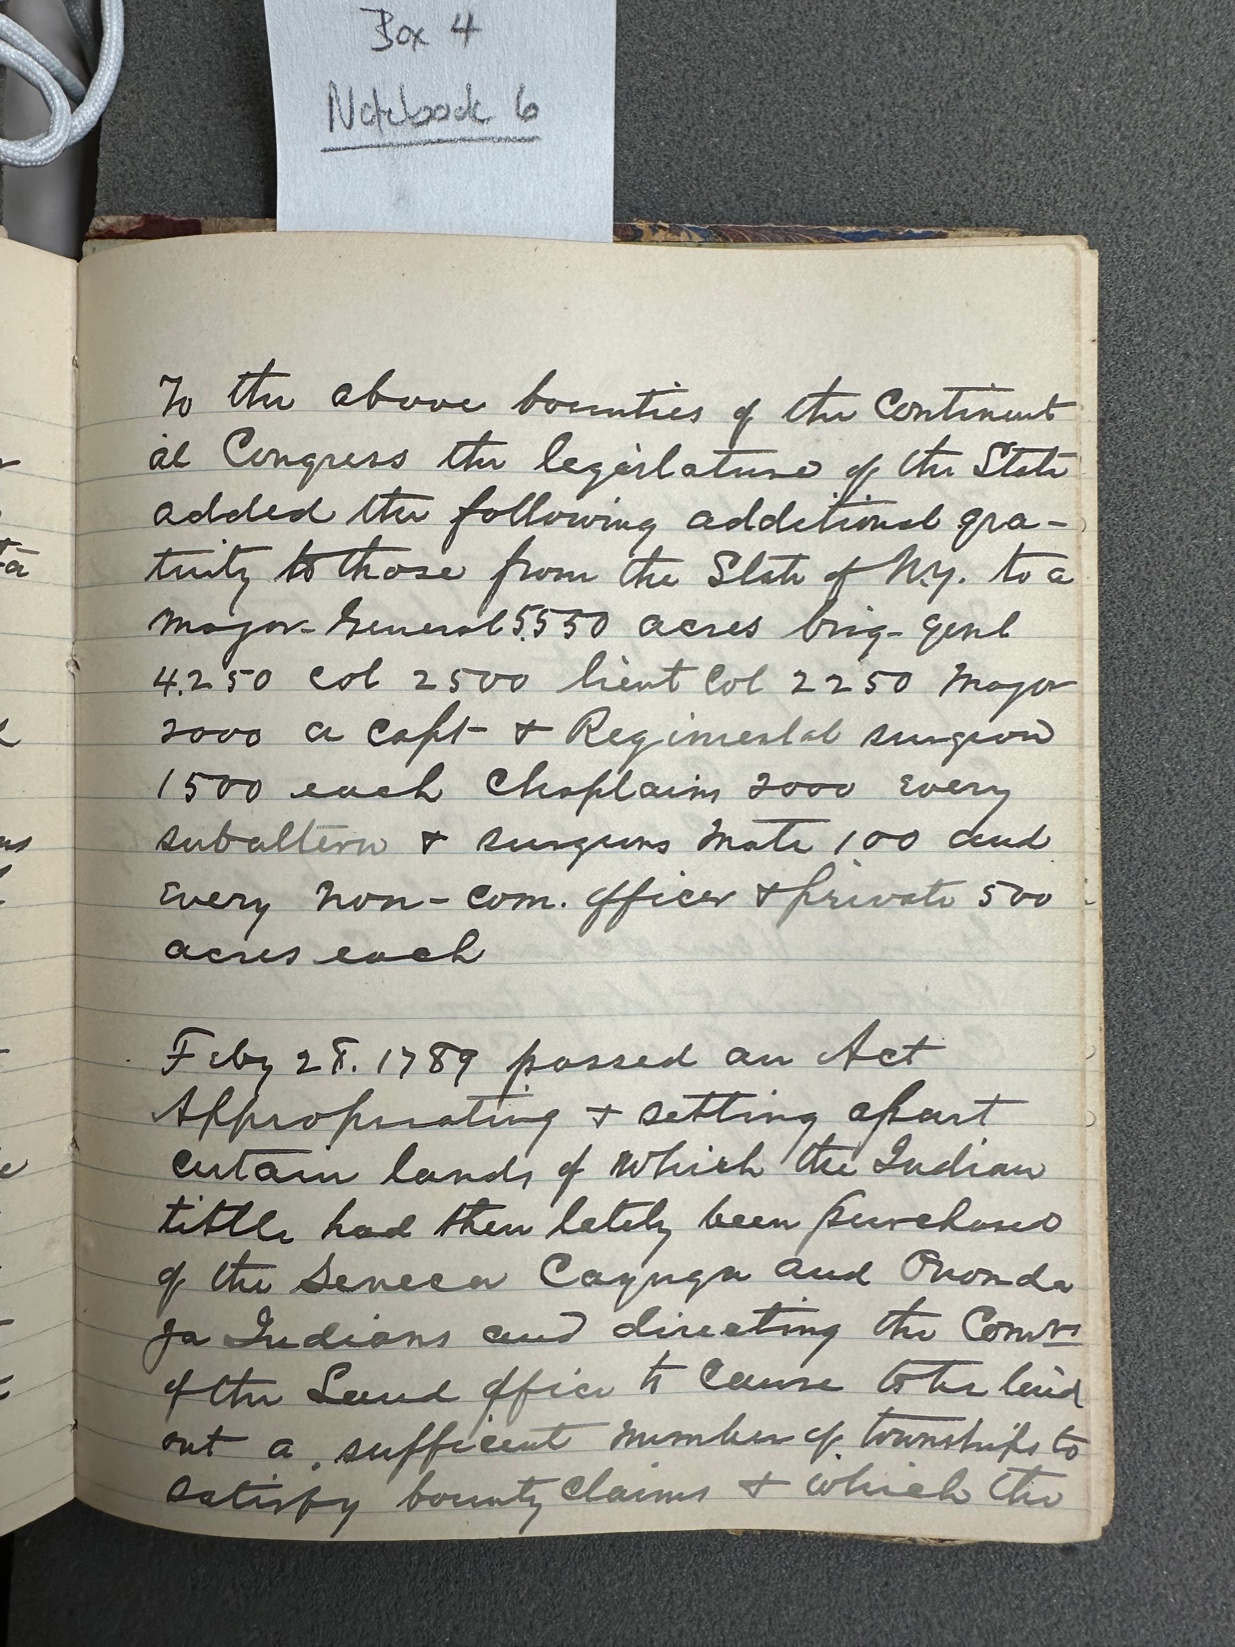 Box 4
Notebook 6
To the above bounties of the Continent
al Congress the legislature of the State
added the following additional gra-
tuity to those from the State of N.Y. to a
Major-General 5.550 acres brig-genl
4.250 Col 2500 lieut Col 2250 Major
2000 a Capt & Regimental surgeon
1500 each Chaplain 2000 Every
subaltern & surgeons mate 100 and
Every non-com. officer & private 500
acres each
Feby 28. 1789 passed an Act
Appropriating & setting apart
certain lands of which the Indian
tittle had then lately been purchased
of the Seneca Cayuga and Ononda
ga Indians and directing the Comrs
of the Land office to Cause to be laid
out a sufficent number of townships to
satisfy bounty claims & which the